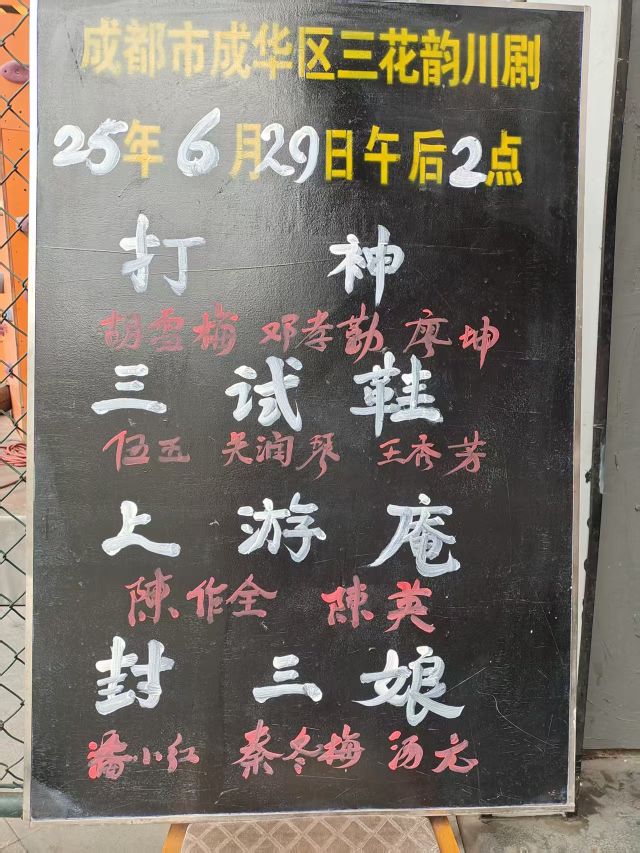 成都市成华区三花韵川剧
25年6月29日午后2点
打 神
胡雪梅 邓孝勤 廖坤
三 试 鞋
伍五 吴润琴 王秀芳
上 游 庵
陳作全 陳英
封 三 娘
潘小红 秦冬梅 汤元